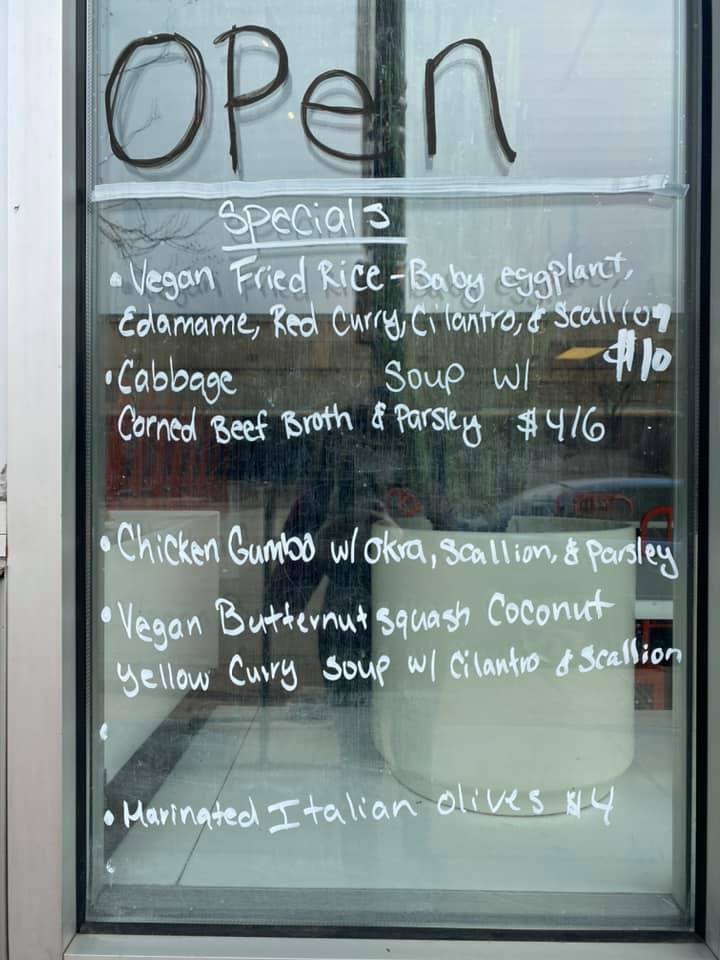 OPen
Specials
• Vegan Fried Rice - Baby eggplant,
Edamame, Red Curry, Cilantro, & Scallion
$10
• Cabbage Soup w/
Corned Beef Broth & Parsley $4/6
• Chicken Gumbo w/ Okra, Scallion, & Parsley
• Vegan Butternut Squash Coconut
Yellow Curry Soup w/ Cilantro & Scallion
•
• Marinated Italian Olives $4